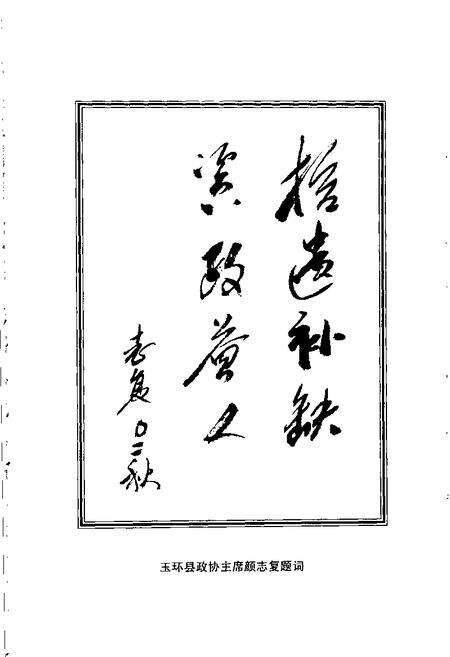 拾遗补缺
资政荟人
志复
〇二秋
玉环县政协主席颜志复题词